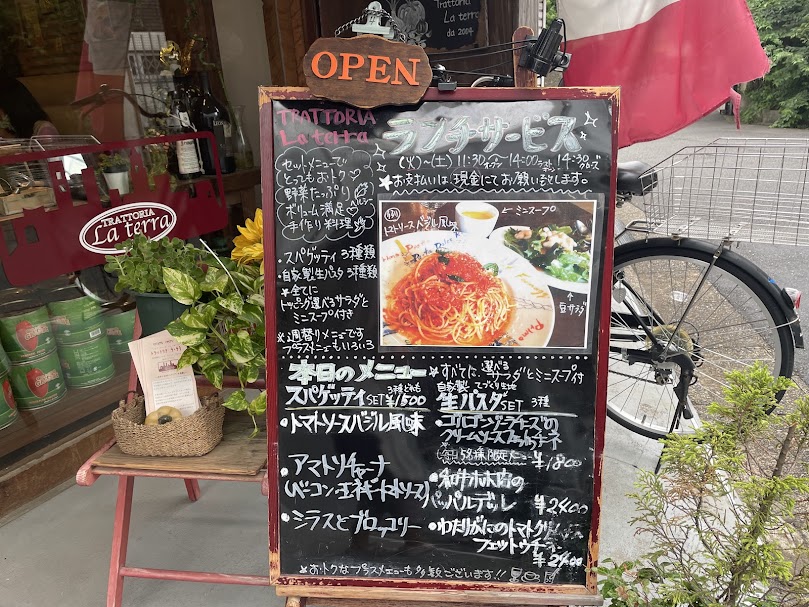 Trattoria
La terra
da 2004
OPEN
TRATTORIA
La terra
ランチサービス
(火)〜(土) 11:30 オープン 〜 14:00 14:30 クローズ
★お支払いは、現金にてお願いします。
セットメニューで
とってもおトク♡
野菜たっぷり
ボリューム満足♡
手作り料理
・スパゲッティ 3種類
・自家製生パスタ 3種類
※全てに
トッピング選べるサラダと
ミニスープ付き
※週替りメニューです
プラスメニューもいろいろ
トマトソースバジル風味
←ミニスープ
↑サラダ
TRATTORIA
La terra
本日のメニュー
★すべてに選べるサラダとミニスープ付
スパゲッティ SET ¥1500
3種とも
・トマトソースバジル風味
・アマトリチャーナ
(ベーコン玉ネギトマトソース)
・シラスとブロッコリー
自家製 手づくり生地
生パスタSET 3種
・ゴルゴンゾーラチーズの
クリームソース
¥1800
・和牛ホホ肉の
パパルデレ ¥2400
・わたりがにのトマトクリーム
フェットウチーネ
¥2400
☆おトクなプラスメニューも多数ございます!!